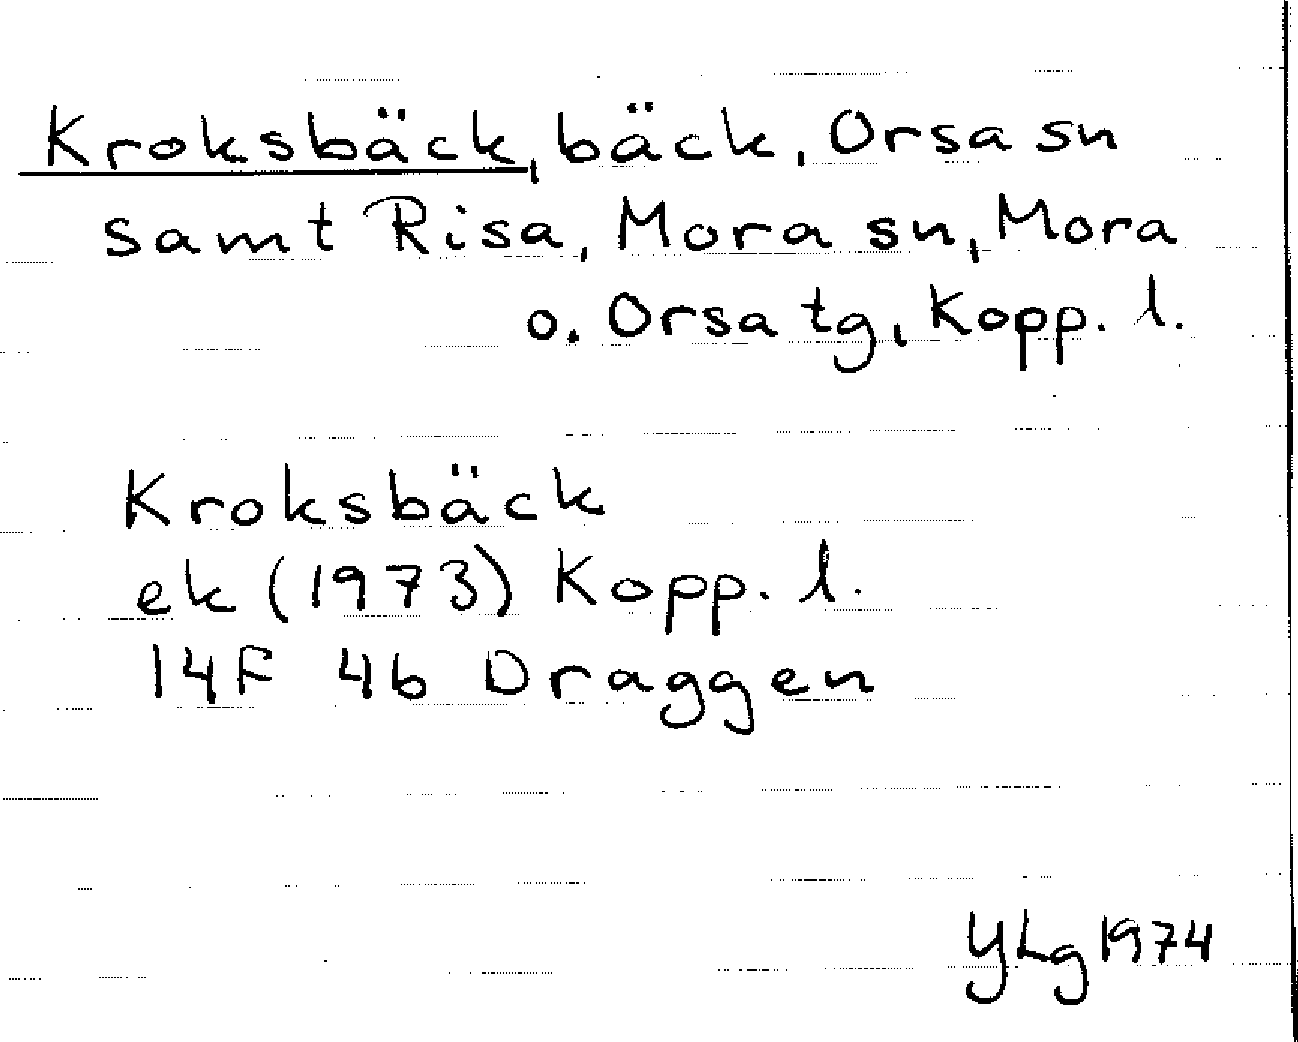 Kroksbäck, bäck, Orsa sn
samt Risa, Mora sn, Mora
o. Orsa tg, Kopp. l.
Kroksbäck
ek (1973) Kopp. l.
14F 4b Draggen
YLg 1974